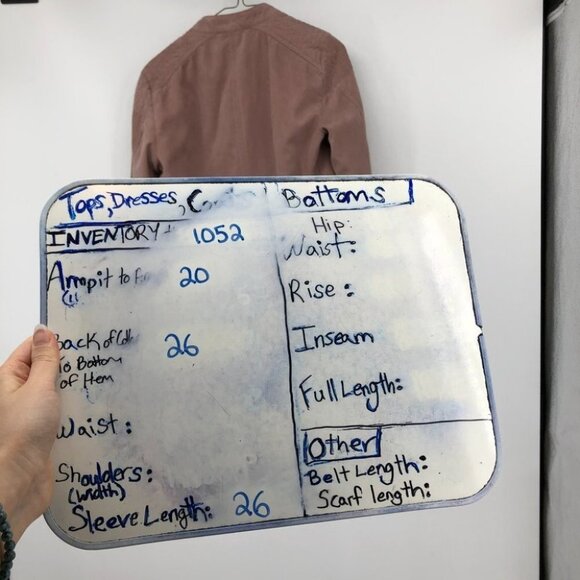 Tops, Dresses,
INVENTORY 1052
Armpit to 20
Back of
To Bottom 26
of Hem
Waist:
Shoulders:
(width)
Sleeve Length: 26
Bottoms
Hip:
Waist:
Rise:
Inseam
Full Length:
Other
Belt Length:
Scarf length: